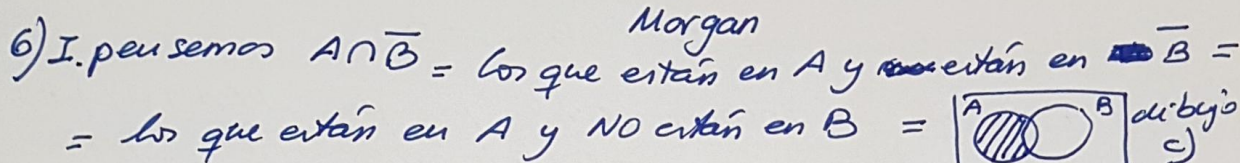 Morgan
6) I. pensemos A∩B̅ = los que están en A y están en B̅ =
= los que están en A y NO están en B = A B dibujo
c)